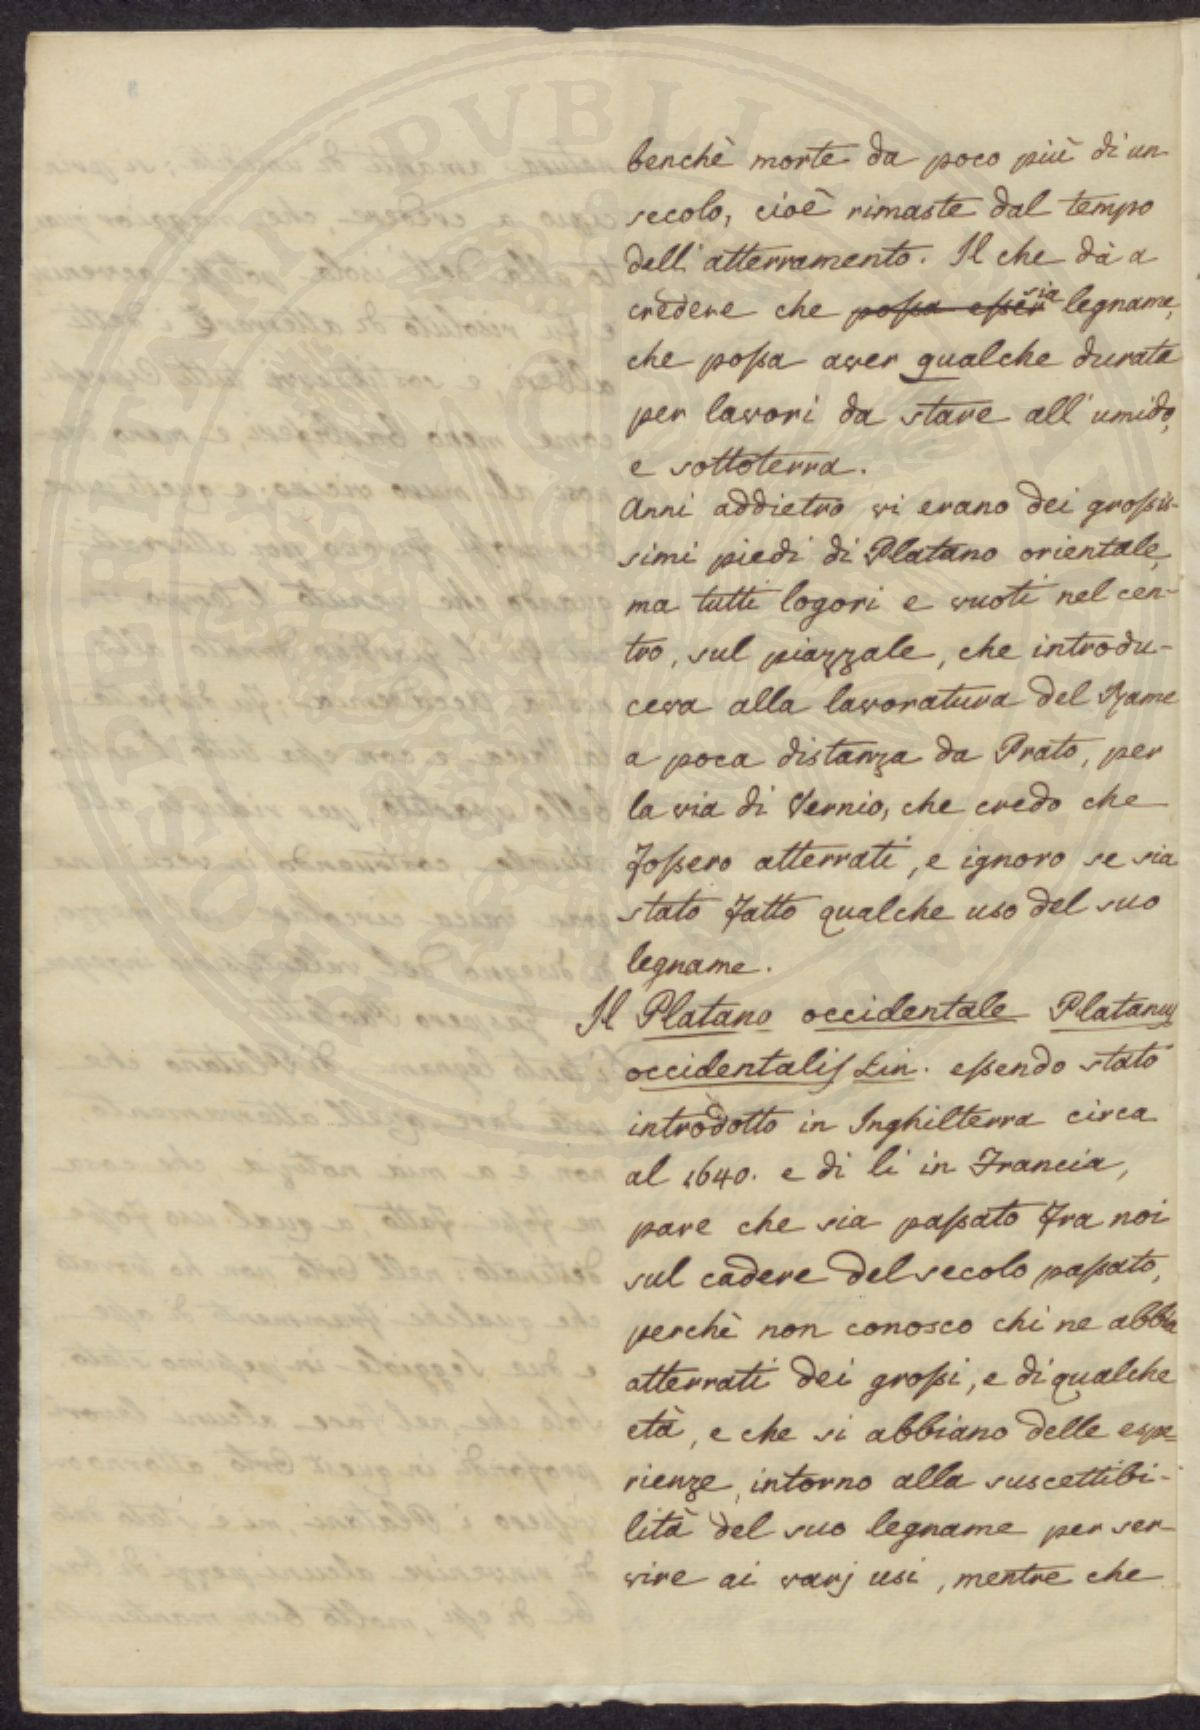 benchè morte da poco più di un
secolo, cioè rimaste dal tempo
dell'atterramento. Il che dà a
credere che possa esser sia legname,
che possa aver qualche durata
per lavori da stare all'umido,
e sottoterra.
Anni addietro vi erano dei grossis-
simi piedi di Platano orientale,
ma tutti logori e vuoti nel cen-
tro, sul piazzale, che introdu-
ceva alla lavoratura del Rame
a poca distanza da Prato, per
la via di Vernio, che credo che
fossero atterrati, e ignoro se sia
stato fatto qualche uso del suo
legname.
Il Platano occidentale Platanus
occidentalis Lin. essendo stato
introdotto in Inghilterra circa
al 1640. e di li in Francia,
pare che sia passato fra noi
sul cadere del secolo passato,
perchè non conosco chi ne abbia
atterrati dei grossi, e di qualche
età, e che si abbiano delle espe=
rienze, intorno alla suscettibi-
lità del suo legname per ser-
vire ai varj usi, mentre che